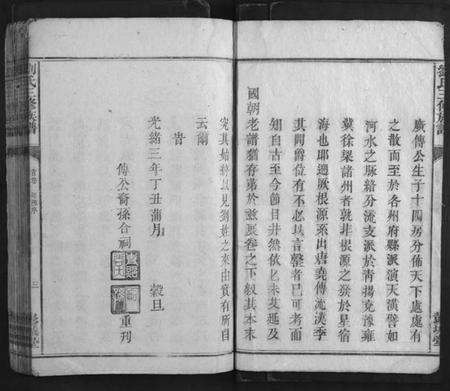 劉氏三修族譜
廣傳公生子十四房分佈天下處處有
之散而至於各州府縣派演天潢譬如
河水之脉絡分流支派於青揚兗豫雍
冀徐梁諸州者孰非根源之發於星宿
海也耶遡厥根源系出唐堯傳流漢季
其間爵位有不必以言罄者已可考而
知自古至今節目井然依
國朝老譜猶存弟於
究其始終以見劉姓之來由實有所自
云爾
旹
光緒三年丁丑蒲月 穀旦
傳公裔孫合祠 重刋
劉氏三修族譜